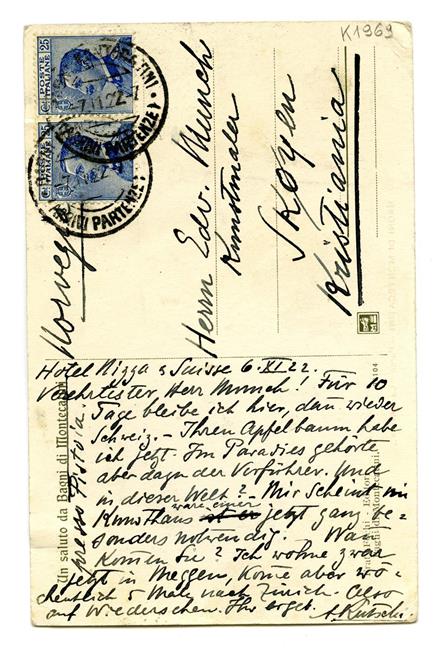 K1969
POSTE ITALIANE
C. 25
POSTE ITALIANE
C. 25
7.11.22
ARRIVI PARTENZE
ARRIVI PARTENZE
Herrn Edv. Munch
Kunstmaler
Skøyen
Kristiania
Norvegia
Un saluto da Bagni di Montecatini
presso Pistoia.
104
Hotel Nizza & Suisse 6. XI. 22.
Verehrtester Herr Munch! Für 10
Tage bleibe ich hier, dan wieder
Schweiz. - Ihren Apfelbaum habe
ich jetzt. Im Paradies gehörte
aber dazu der Verführer. Und
in dieser Welt? - Mir scheint im
wäre einer
Kunsthaus jetzt ganz be=
sonders notwendig. Wan
komen Sie? Ich wohne zwar
jetzt in Meggen, kome aber wö=
chentlich 5 Mal nach Zürich. Also
auf Wiedersehen. Ihr ergeb.